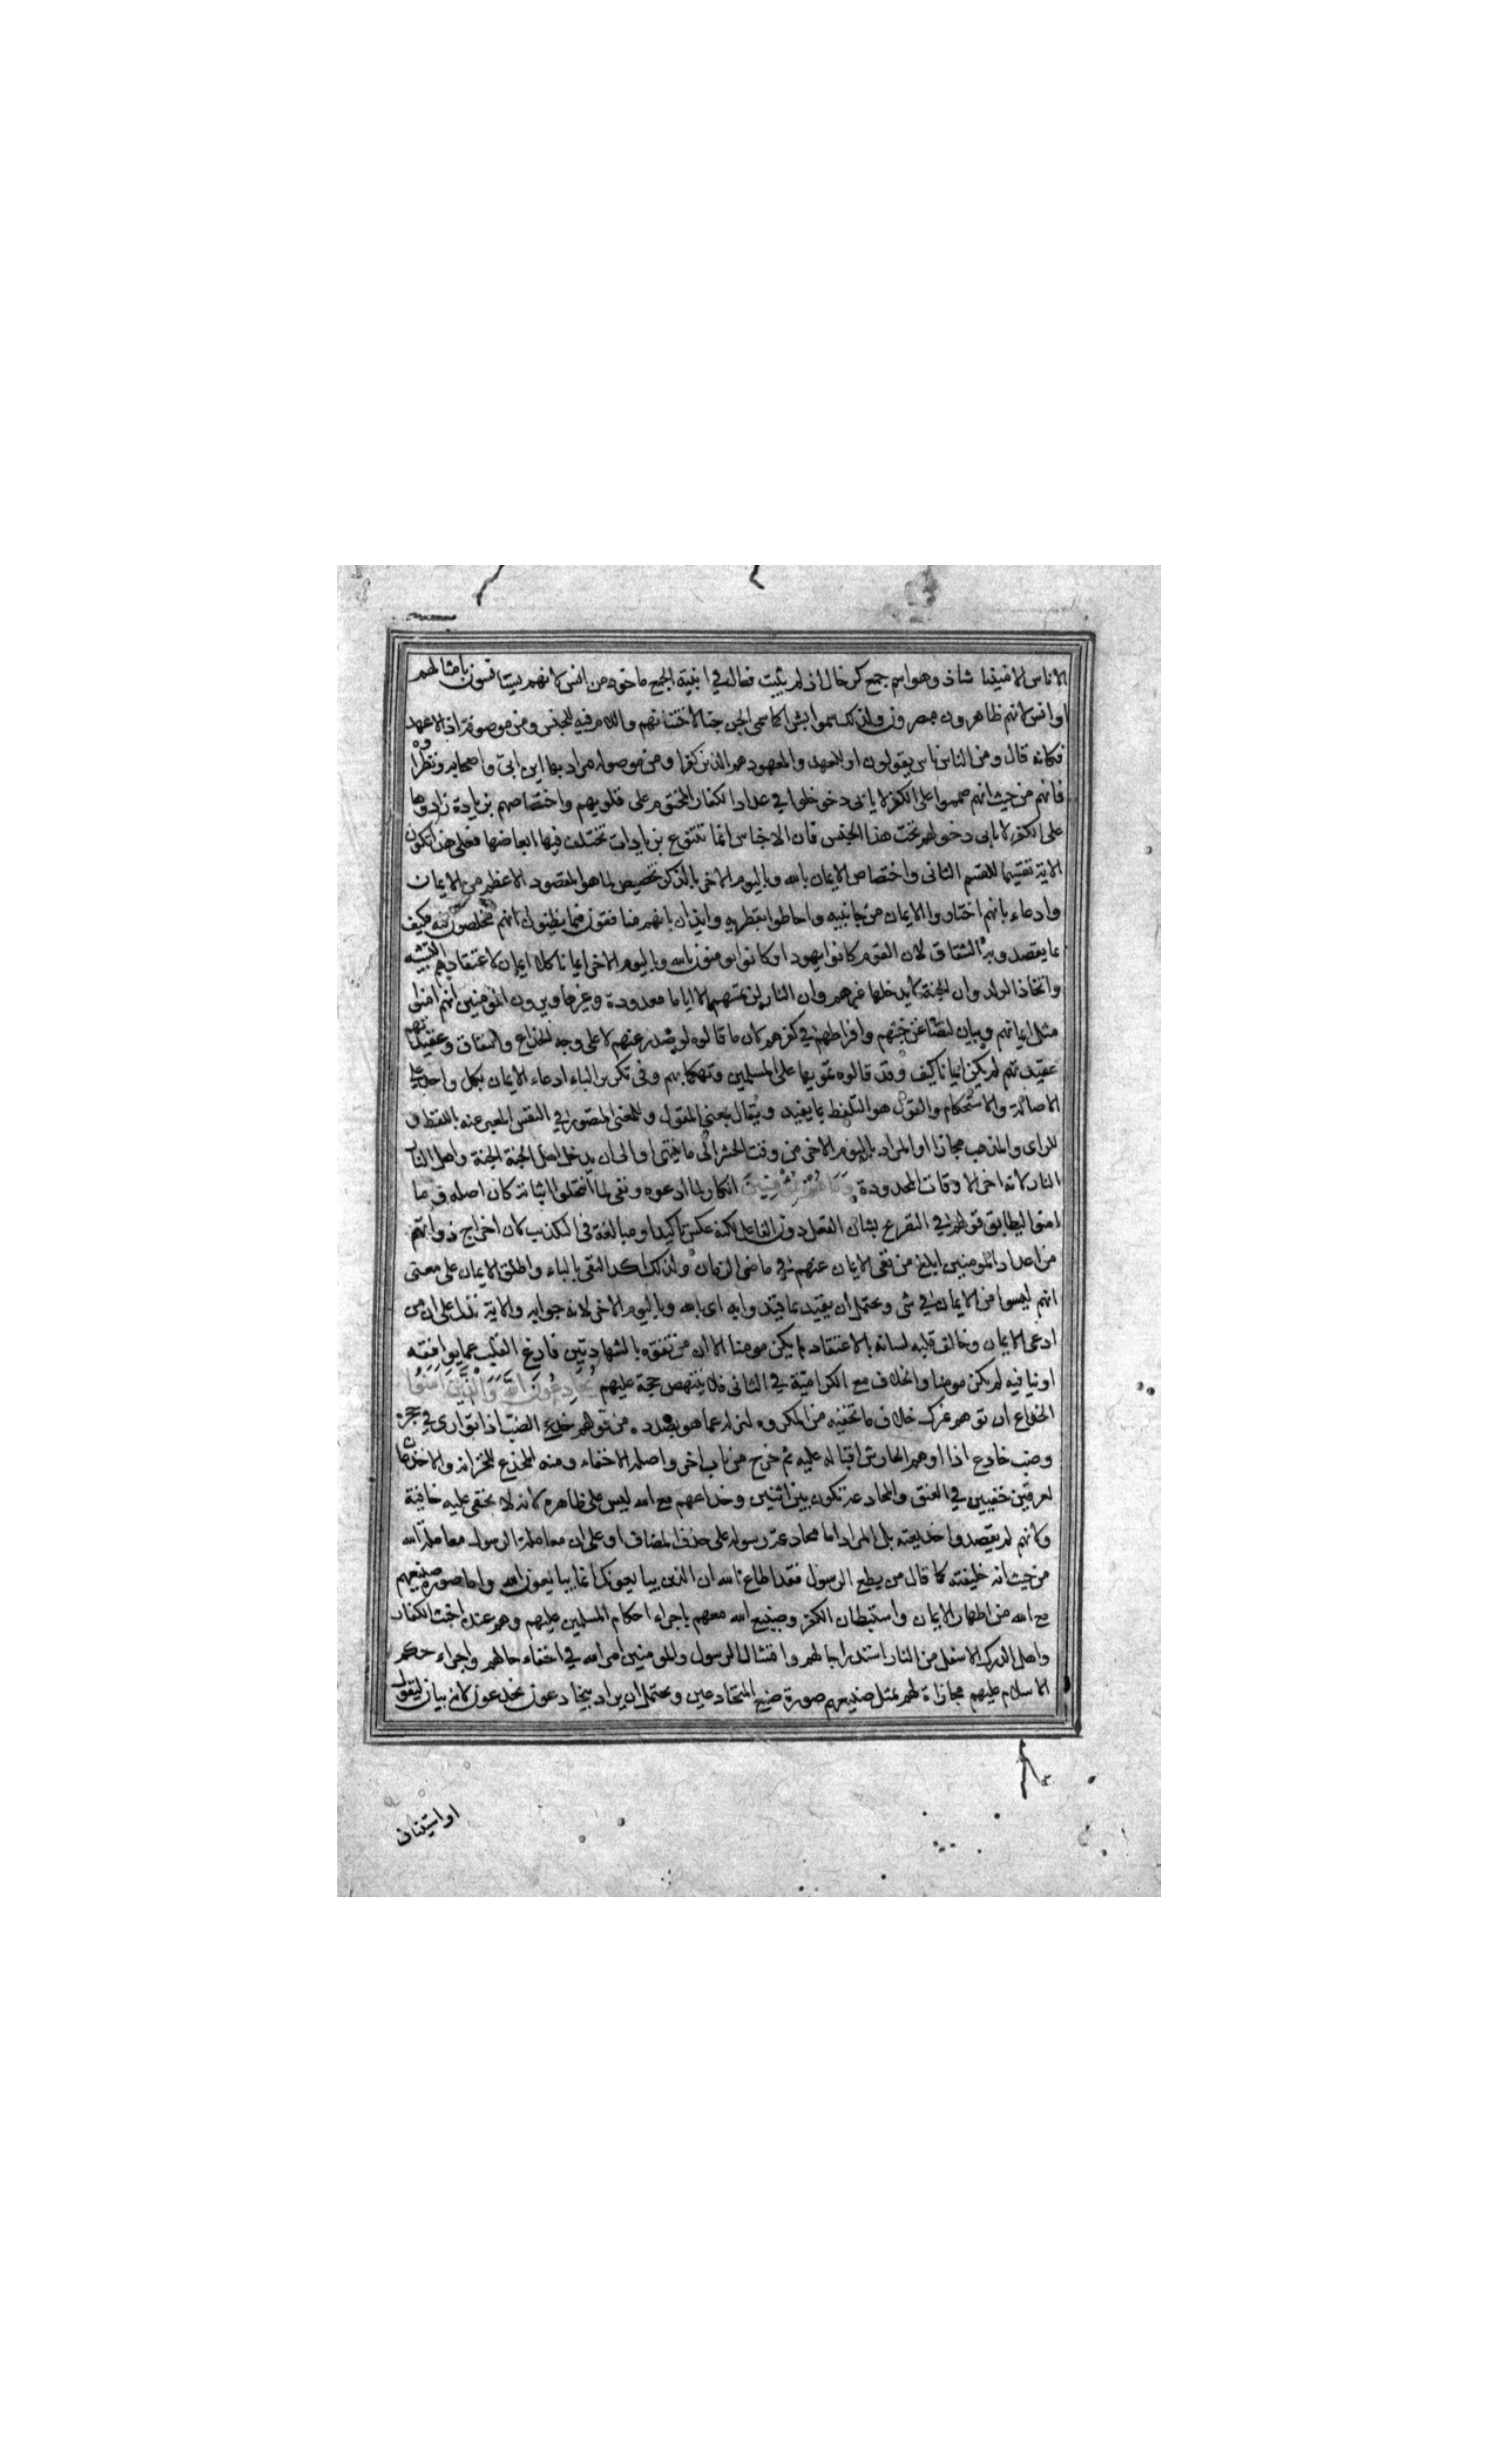 الاناس الامنينا شاذ وهو اسم جمع كرخال اذ لم يثبت فعال في ابنية الجمع ماخوذ من انس لانهم يستانسون بامثالهم
او انس لانهم ظاهرون مبصرون ولذلك سموا بشرا كما سمى الجن جنا لاجتنانهم واللام فيه للجنس ومن موصوفة اذ لا عهد
فكانه قال ومن الناس ناس يقولون او للعهد والمعهود هم الذين كفروا ومن موصولة مراد بها ابن ابى واصحابه ونظراوه
فانهم من حيث انهم صمموا على الكفر دخلوا في عداد الكفار المختوم على قلوبهم واختصاصهم بزيادة زادوها
على الكفر لا يابى دخولهم تحت هذا الجنس فان الاجناس انما تتنوع بزيادات تختلف فيها ابعاضها فعلى هذا تكون
الاية تقسيما للقسم الثانى واختصاص الايمان بالله وباليوم الاخر بالذكر تخصيص لما هو المقصود الاعظم من الايمان
وادعاء بانهم اختاروا الايمان من جانبيه واحاطوا بقطريه وايذان بانهم منافقون فيما يظنون انهم مخلصون فيه فكيف
بما يقصدون به النفاق لان القوم كانوا يهودا وكانوا يومنون بالله وباليوم الاخر ايمانا كلا ايمان لاعتقادهم التشبيه
واتخاذ الولد وان الجنة لا يدخلها غيرهم وان النار لن تمسهم الا اياما معدودة وغيرها ويرون المومنين انهم امنوا
مثل ايمانهم وبيان لتضاعف خبثهم وافراطهم في كفرهم لان ما قالوه لو صدر عنهم لا على وجه الخداع والنفاق وعقيدتهم
عقيدتهم لم يكن ايمانا كيف وقد قالوه تمويها على المسلمين وتهكما بهم وفى تكرير الباء ادعاء الايمان بكل واحد على
الاصالة والاستحكام والقول هو التلفظ بما يفيد ويقال بمعنى المقول وللمعنى المتصور في النفس المعبر عنه باللفظ و
للراى والمذهب مجازا والمراد باليوم الاخر من وقت الحشر الى ما لا ينتهى او الى ان يدخل اهل الجنة الجنة واهل النار
النار لانه اخر الاوقات المحدودة وما هم بمؤمنين انكار لما ادعوه ونفى لما انتحلوا اثباته كان اصله وما
امنوا ليطابق قولهم في التصريح بشان الفعل دون الفاعل لكنه عكس تاكيدا ومبالغة فى التكذيب لان اخراج ذواتهم
من اعداد المومنين ابلغ من نفى الايمان عنهم في ماضى الزمان ولذلك اكد النفى بالباء واطلق الايمان على معنى
انهم ليسوا من الايمان في شى ويحتمل ان يقيد بما قيدوا به اى بالله وباليوم الاخر لانه جوابه والاية تدل على ان من
ادعى الايمان وخالف قلبه لسانه بالاعتقاد لم يكن مومنا لا ان من تفوه بالشهادتين فارغ القلب عما يوافقه
او ينافيه لم يكن مومنا والخلاف مع الكرامية في الثانى فلا ينتهض حجة عليهم يخادعون الله والذين امنوا
الخداع ان توهم غيرك خلاف ما تخفيه من المكروه لتزله عما هو بصدده من قولهم خدع الضب اذا توارى في جحره
وضب خادع اذا اوهم الحارش اقباله عليه ثم خرج من باب اخر واصله الاخفاء ومنه المخدع للخزانة والاخدعان
لعرقين خفيين في العنق والمخادعة تكون بين اثنين وخداعهم مع الله ليس على ظاهره لانه لا يخفى عليه خافية
ولانهم لم يقصدوا خديعته بل المراد اما مخادعة رسوله على حذف المضاف او على ان معاملة الرسول معاملة الله
من حيث انه خليفته كما قال من يطع الرسول فقد اطاع الله ان الذين يبايعونك انما يبايعون الله واما صورة صنيعهم
مع الله من اظهار الايمان واستبطان الكفر وصنيع الله معهم باجراء احكام المسلمين عليهم وهم عنده اخبث الكفار
واهل الدرك الاسفل من النار استدراجا لهم وامتثال الرسول والمومنين امر الله في اخفاء حالهم واجراء حكم
الاسلام عليهم مجازاة لهم بمثل صنيعهم صورة صنيع المتخادعين ويحتمل ان يراد بيخادعون يخدعون لانه بيان ليقول
او استيناف